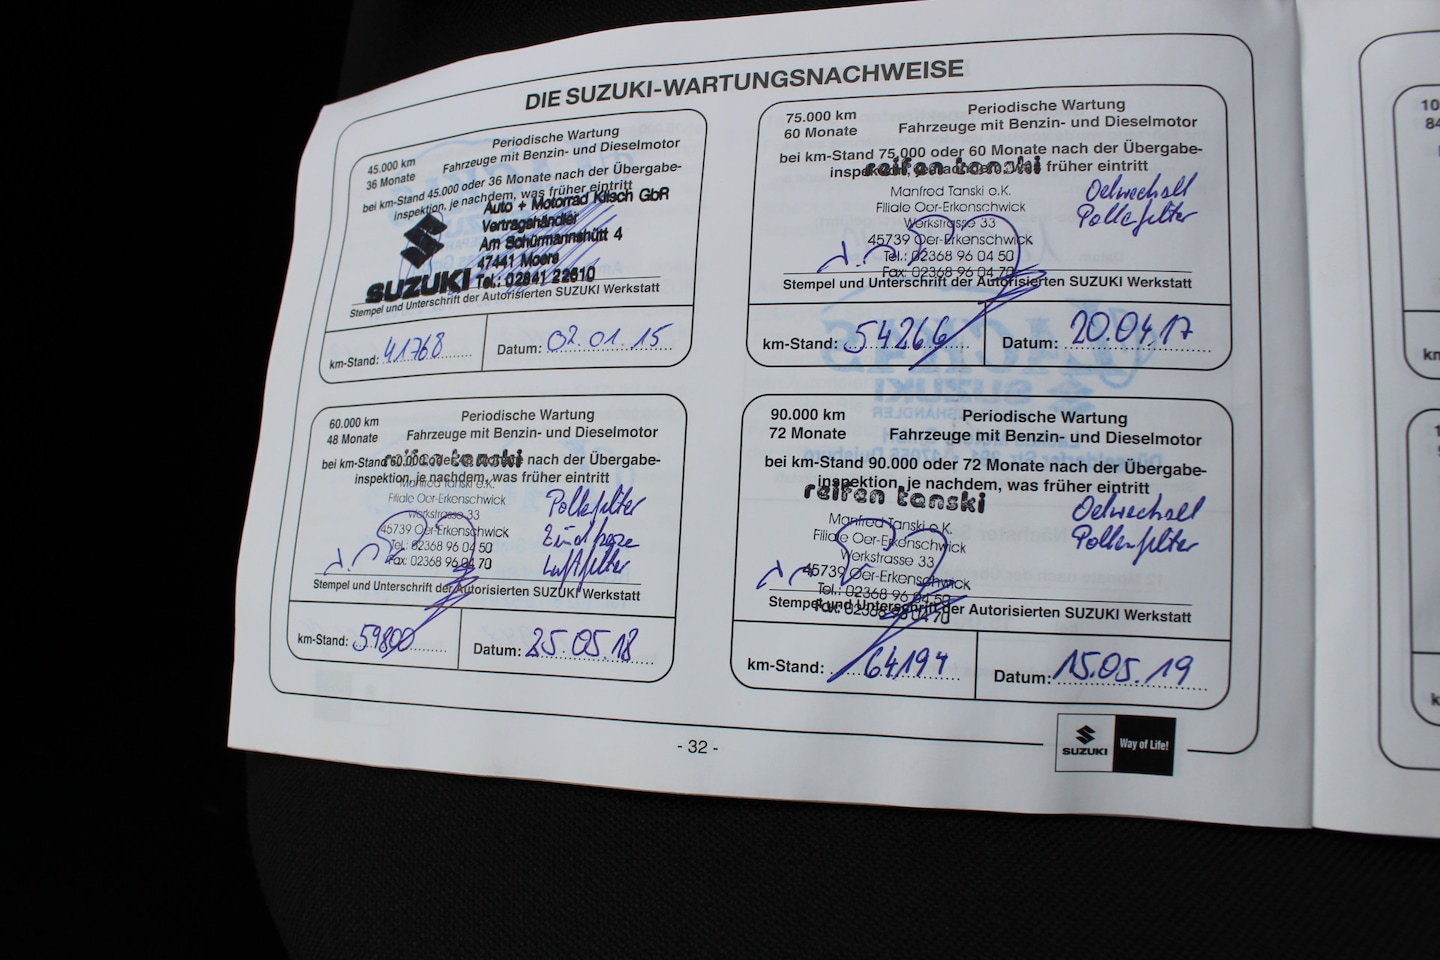 DIE SUZUKI-WARTUNGSNACHWEISE
45.000 km
36 Monate
Periodische Wartung
Fahrzeuge mit Benzin- und Dieselmotor
bei km-Stand 45.000 oder 36 Monate nach der Übergabe-
inspektion, je nachdem, was früher eintritt
Auto + Motorrad Klisch GbR
Vertragshändler
Am Schürmannshütt 4
47441 Moers
SUZUKI Tel.: 02841 22610
Stempel und Unterschrift der Autorisierten SUZUKI Werkstatt
km-Stand: 41768 Datum: 02.01.15
60.000 km
48 Monate
Periodische Wartung
Fahrzeuge mit Benzin- und Dieselmotor
bei km-Stand 60.000 oder 48 Monate nach der Übergabe-
inspektion, je nachdem, was früher eintritt
reifen tanski
Manfred Tanski e.K.
Filiale Oer-Erkenschwick
Werkstrasse 33
45739 Oer-Erkenschwick
Tel.: 02368 96 04 50
Fax: 02368 96 04 70
Pollenfilter
Zündkerze
Luftfilter
Stempel und Unterschrift der Autorisierten SUZUKI Werkstatt
km-Stand: 59800 Datum: 25.05.18
75.000 km
60 Monate
Periodische Wartung
Fahrzeuge mit Benzin- und Dieselmotor
bei km-Stand 75.000 oder 60 Monate nach der Übergabe-
inspektion, je nachdem, was früher eintritt
reifen tanski
Manfred Tanski e.K.
Filiale Oer-Erkenschwick
Werkstrasse 33
45739 Oer-Erkenschwick
Tel.: 02368 96 04 50
Fax: 02368 96 04 70
Oelwechsel
Pollenfilter
Stempel und Unterschrift der Autorisierten SUZUKI Werkstatt
km-Stand: 54266 Datum: 20.04.17
90.000 km
72 Monate
Periodische Wartung
Fahrzeuge mit Benzin- und Dieselmotor
bei km-Stand 90.000 oder 72 Monate nach der Übergabe-
inspektion, je nachdem, was früher eintritt
reifen tanski
Manfred Tanski e.K.
Filiale Oer-Erkenschwick
Werkstrasse 33
45739 Oer-Erkenschwick
Tel.: 02368 96 04 50
Fax: 02368 96 04 70
Oelwechsel
Pollenfilter
Stempel und Unterschrift der Autorisierten SUZUKI Werkstatt
km-Stand: 64194 Datum: 15.05.19
- 32 -
SUZUKI Way of Life!